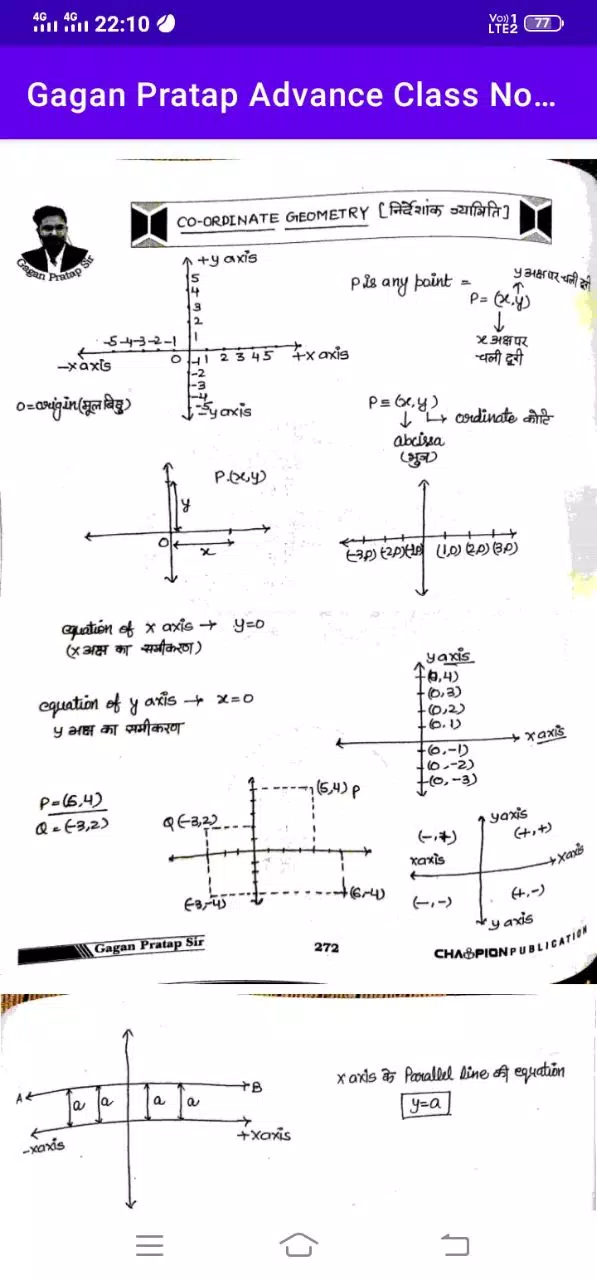 4G 4G 22:10 Vo)) 1 LTE2 77
Gagan Pratap Advance Class No...
CO-ORDINATE GEOMETRY [निर्देशांक ज्यामिति]
Gagan Pratap Sir
+y axis
5
4
3
2
1
-5-4-3-2-1
0
1 2 3 4 5
+x axis
-x axis
-1
-2
-3
-4
-5
-y axis
0=origin(मूल बिंदु)
P is any point =
y अक्ष पर चली दूरी
P= (x,y)
x अक्ष पर
चली दूरी
P= (x,y)
ordinate कोटि
abcissa
(भुज)
P.(x,y)
y
0
x
(-3,0) (-2,0) (-1,0) (1,0) (2,0) (3,0)
equation of x axis → y=0
(x अक्ष का समीकरण)
equation of y axis → x=0
y अक्ष का समीकरण
y axis
(0,4)
(0,3)
(0,2)
(0.1)
x axis
(0,-1)
(0,-2)
(0,-3)
P=(5,4)
Q=(-3,2)
(5,4) P
Q(-3,2)
(-3,-4)
(6,-4)
y axis
(-,+)
(+,+)
xaxis
xaxis
(-,-)
(+,-)
y axis
Gagan Pratap Sir
272
CHAMPION PUBLICATION
A
B
a a a a
-xaxis
+xaxis
x axis के Parallel line की equation
y=a